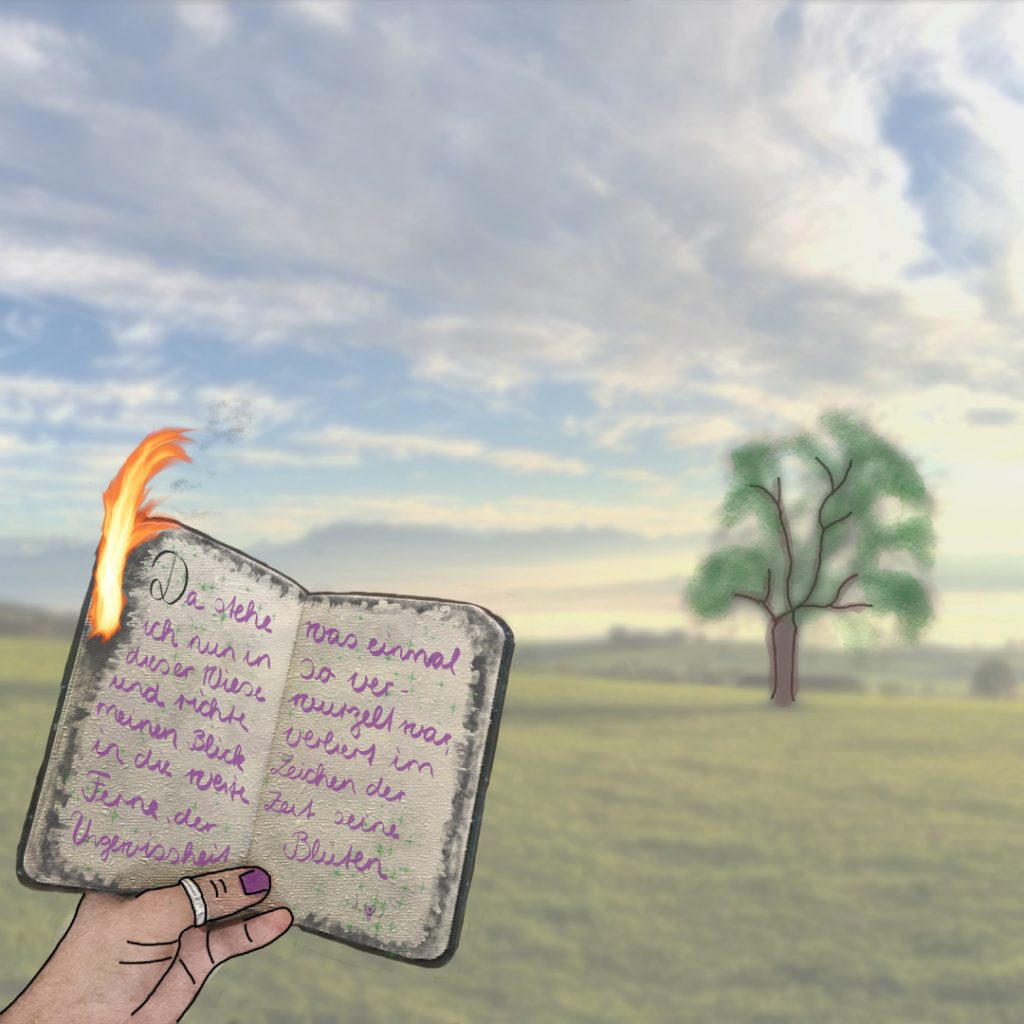 Da stehe
ich nun in
dieser Wiese
und richte
meinen Blick
in die weite
Ferne der
Ungewissheit
was einmal
so ver-
wurzelt war,
verliert im
Zeichen der
Zeit seine
Blüten